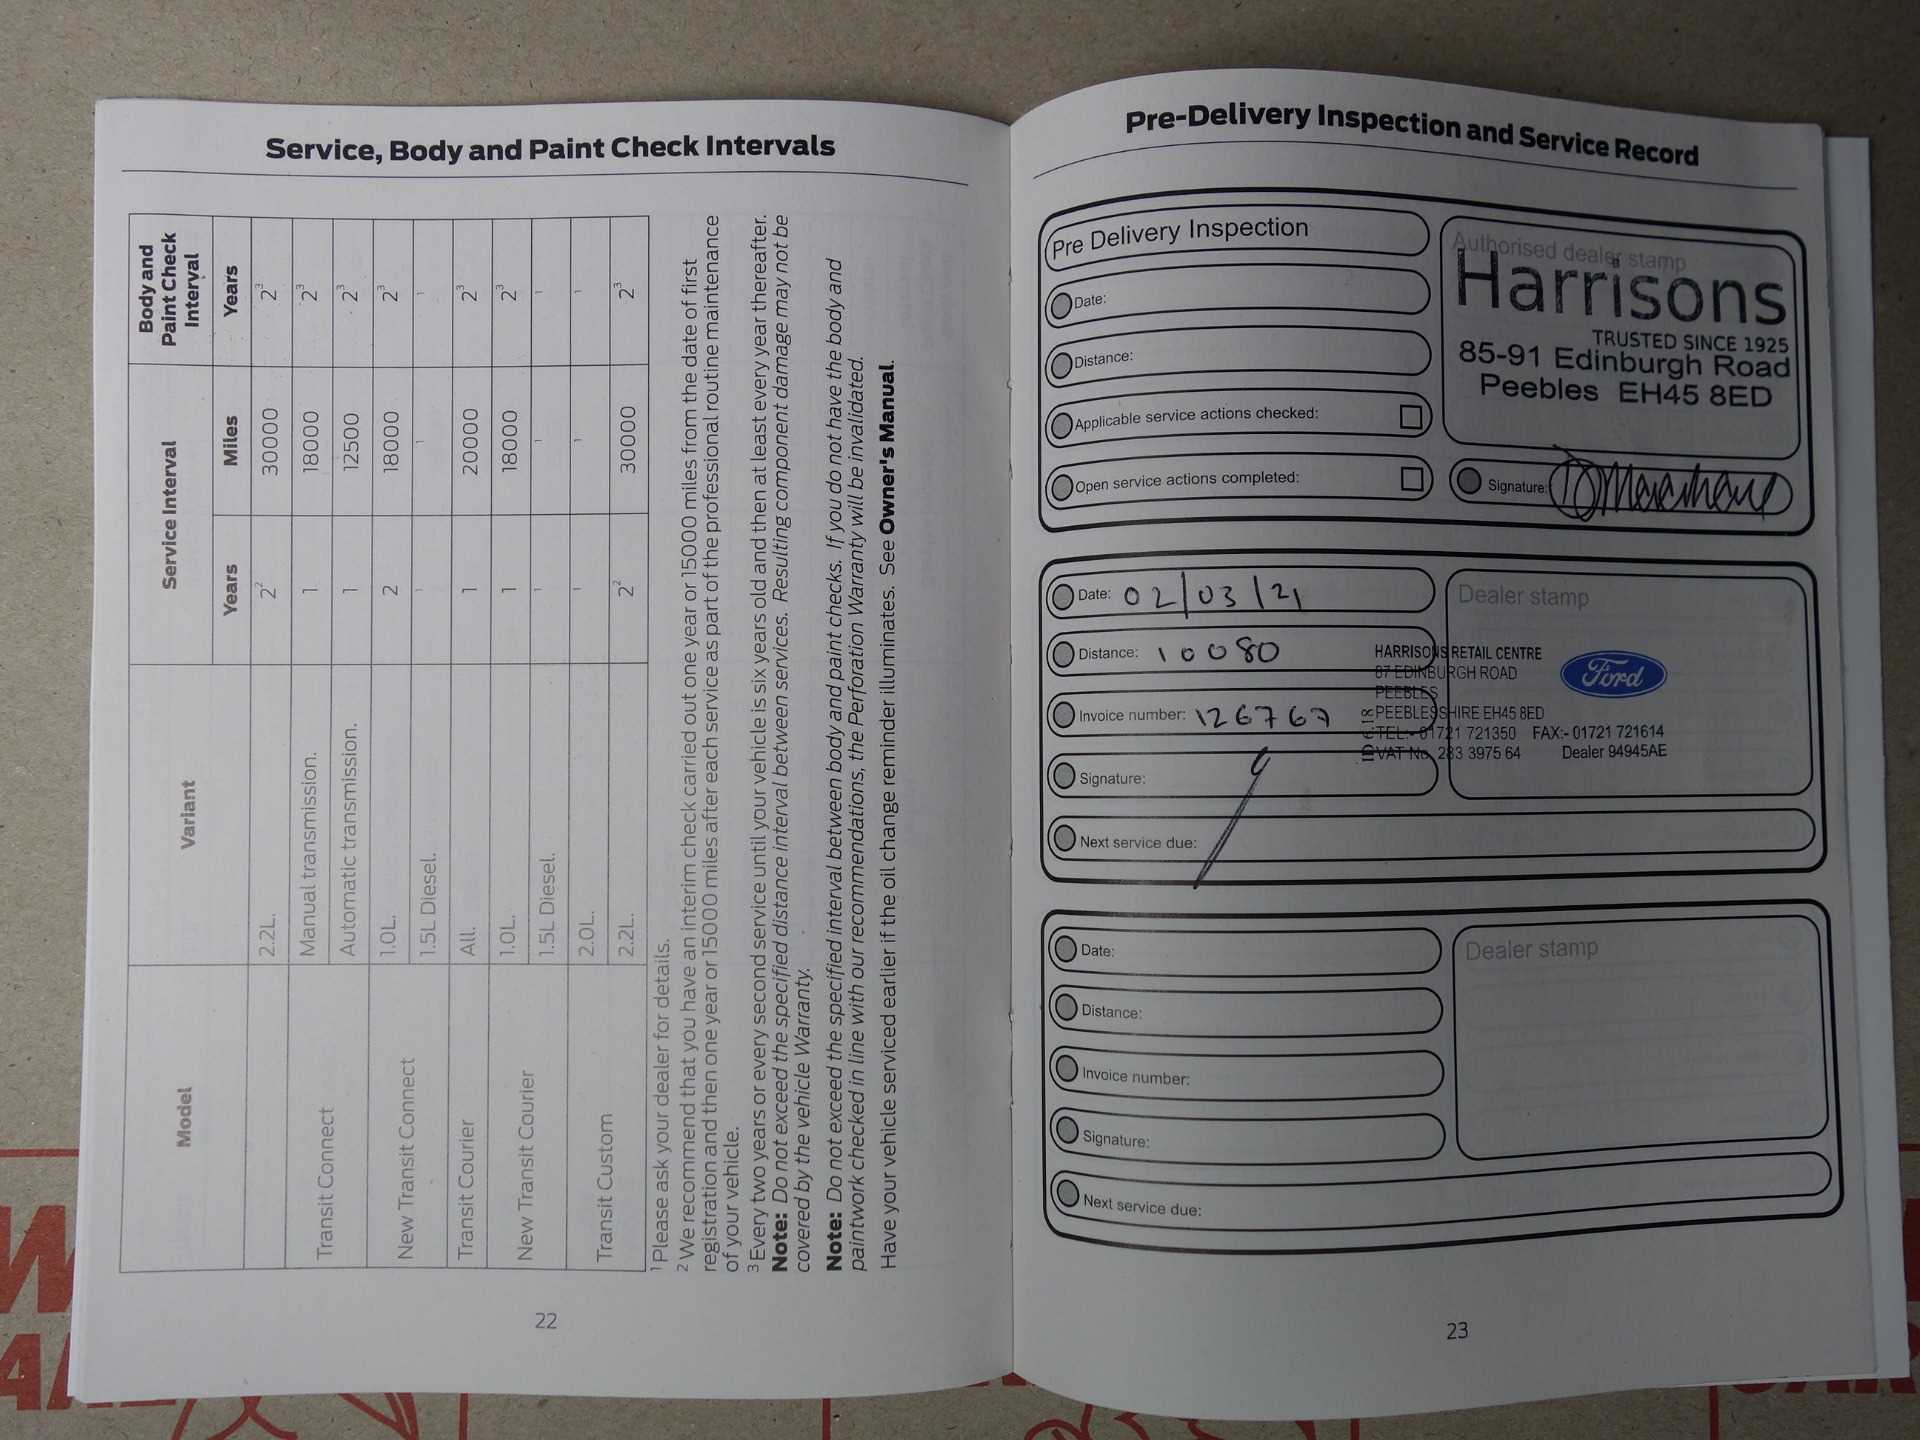 Service, Body and Paint Check Intervals
Model Variant Service Interval Body and Paint Check Interval
Years Miles Years
2.2L. 2² 30000 2³
Transit Connect Manual transmission. 1 18000 2³
Automatic transmission. 1 12500 2³
New Transit Connect 1.0L. 2 18000 2³
1.5L Diesel. 1 1 1
Transit Courier All. 1 20000 2³
New Transit Courier 1.0L. 1 18000 2³
1.5L Diesel. 1 1 1
Transit Custom 2.0L. 1 1 1
2.2L. 2² 30000 2³
1 Please ask your dealer for details.
2 We recommend that you have an interim check carried out one year or 15000 miles from the date of first
registration and then one year or 15000 miles after each service as part of the professional routine maintenance
of your vehicle.
3 Every two years or every second service until your vehicle is six years old and then at least every year thereafter.
Note: Do not exceed the specified distance interval between services. Resulting component damage may not be
covered by the vehicle Warranty.
Note: Do not exceed the specified interval between body and paint checks. If you do not have the body and
paintwork checked in line with our recommendations, the Perforation Warranty will be invalidated.
Have your vehicle serviced earlier if the oil change reminder illuminates. See Owner's Manual.
22
Pre-Delivery Inspection and Service Record
Pre Delivery Inspection
Date:
Distance:
Applicable service actions checked:
Open service actions completed:
Authorised dealer stamp
Harrisons
TRUSTED SINCE 1925
85-91 Edinburgh Road
Peebles EH45 8ED
Signature:
Date: 02/03/21
Distance: 10080
Invoice number: 126767
Signature:
Next service due:
Dealer stamp
HARRISONS RETAIL CENTRE
87 EDINBURGH ROAD
PEEBLES
PEEBLESSHIRE EH45 8ED
TEL:- 01721 721350 FAX:- 01721 721614
VAT No. 283 3975 64 Dealer 94945AE
Ford
Date:
Distance:
Invoice number:
Signature:
Next service due:
Dealer stamp
23